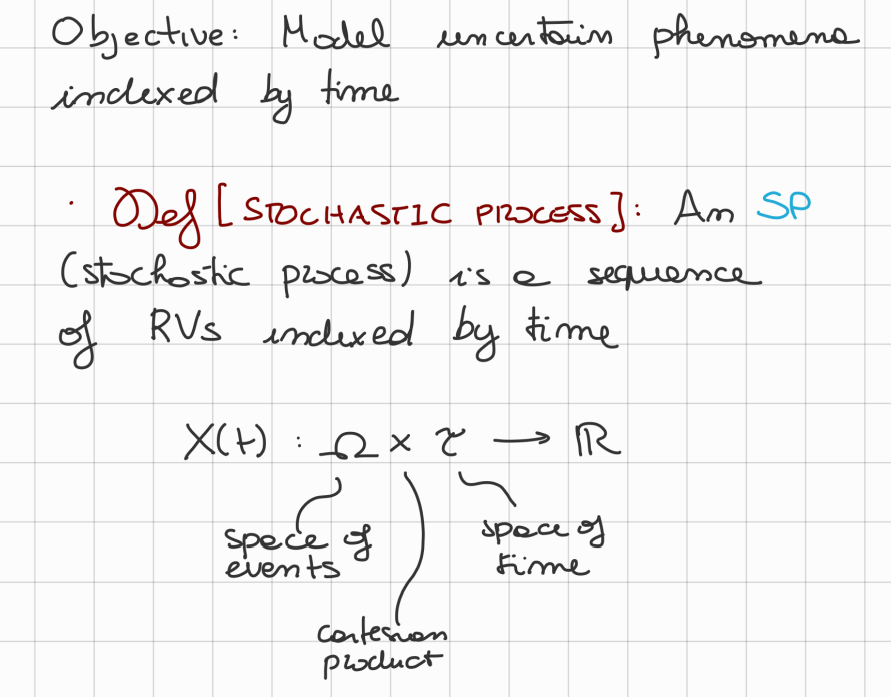 Objective: Model uncertain phenomena
indexed by time
· Def [STOCHASTIC PROCESS]: An SP
(stochastic process) is a sequence
of RVs indexed by time
X(t) : Ω × τ → ℝ
space of events
space of time
cartesian product